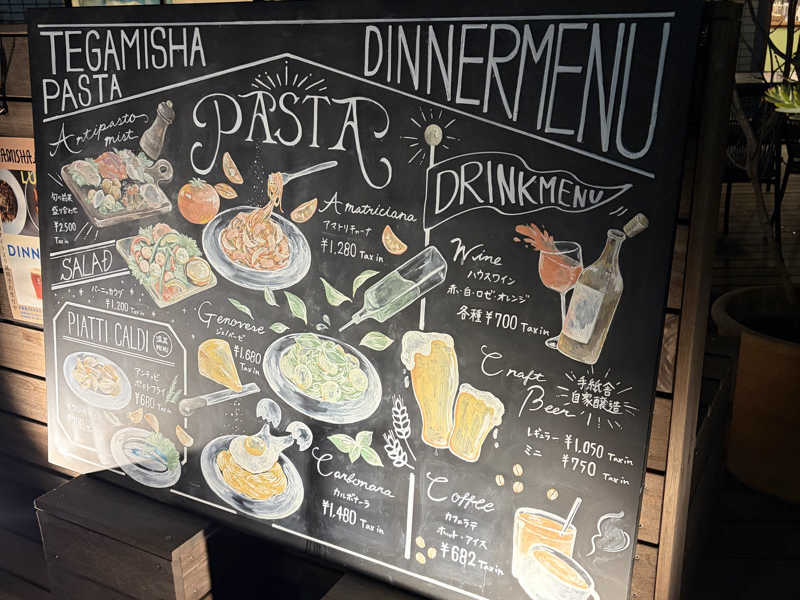 TEGAMISHA
PASTA
DINNERMENU
Antipasto
mist
旬の前菜
盛り合わせ
¥2,500
Tax in
SALAD
バーニャカウダ
¥1,200
Tax in
PIATTI CALDI
アンティッピ
ポテトフライ
¥680
Tax in
PASTA
Amatriciana
アマトリチャーナ
¥1,280 Tax in
Genovese
ジェノベーゼ
¥1,680
Tax in
Carbonara
カルボナーラ
¥1,480 Tax in
DRINKMENU
Wine
ハウスワイン
赤・白・ロゼ・オレンジ
各種 ¥700 Tax in
Craft
Beer
手紙舎
自家醸造
レギュラー ¥1,050 Tax in
ミニ ¥750 Tax in
Coffee
カフェラテ
ホット・アイス
¥682 Tax in